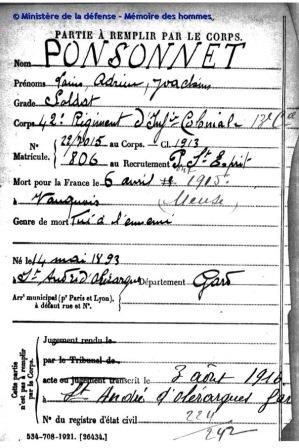 © Ministère de la défense - Mémoire des hommes,
PARTIE À REMPLIR PAR LE CORPS.
Nom PONSONNET
Prénoms Adrien,
Grade Soldat
Corps 42e Régiment d'Infrie Coloniale
N° 22/2015 au Corps. - Cl. 1913
Matricule. 806 au Recrutement Pt St Esprit
Mort pour la France le 6 avril 1915
à Vauquois (Meuse)
Genre de mort Tué à l'ennemi
Né le 14 mai 1893
à St André d'Olérargues Département Gard
Arrt municipal (pr Paris et Lyon),
à défaut rue et N°.
Cette partie
n'est pas à remplir
par le Corps.
Jugement rendu le
par le Tribunal de
acte ou jugement transcrit le 3 août 1916
à St André d'Olérargues Gard
N° du registre d'état civil 224
242
534-708-1921. [26434.]